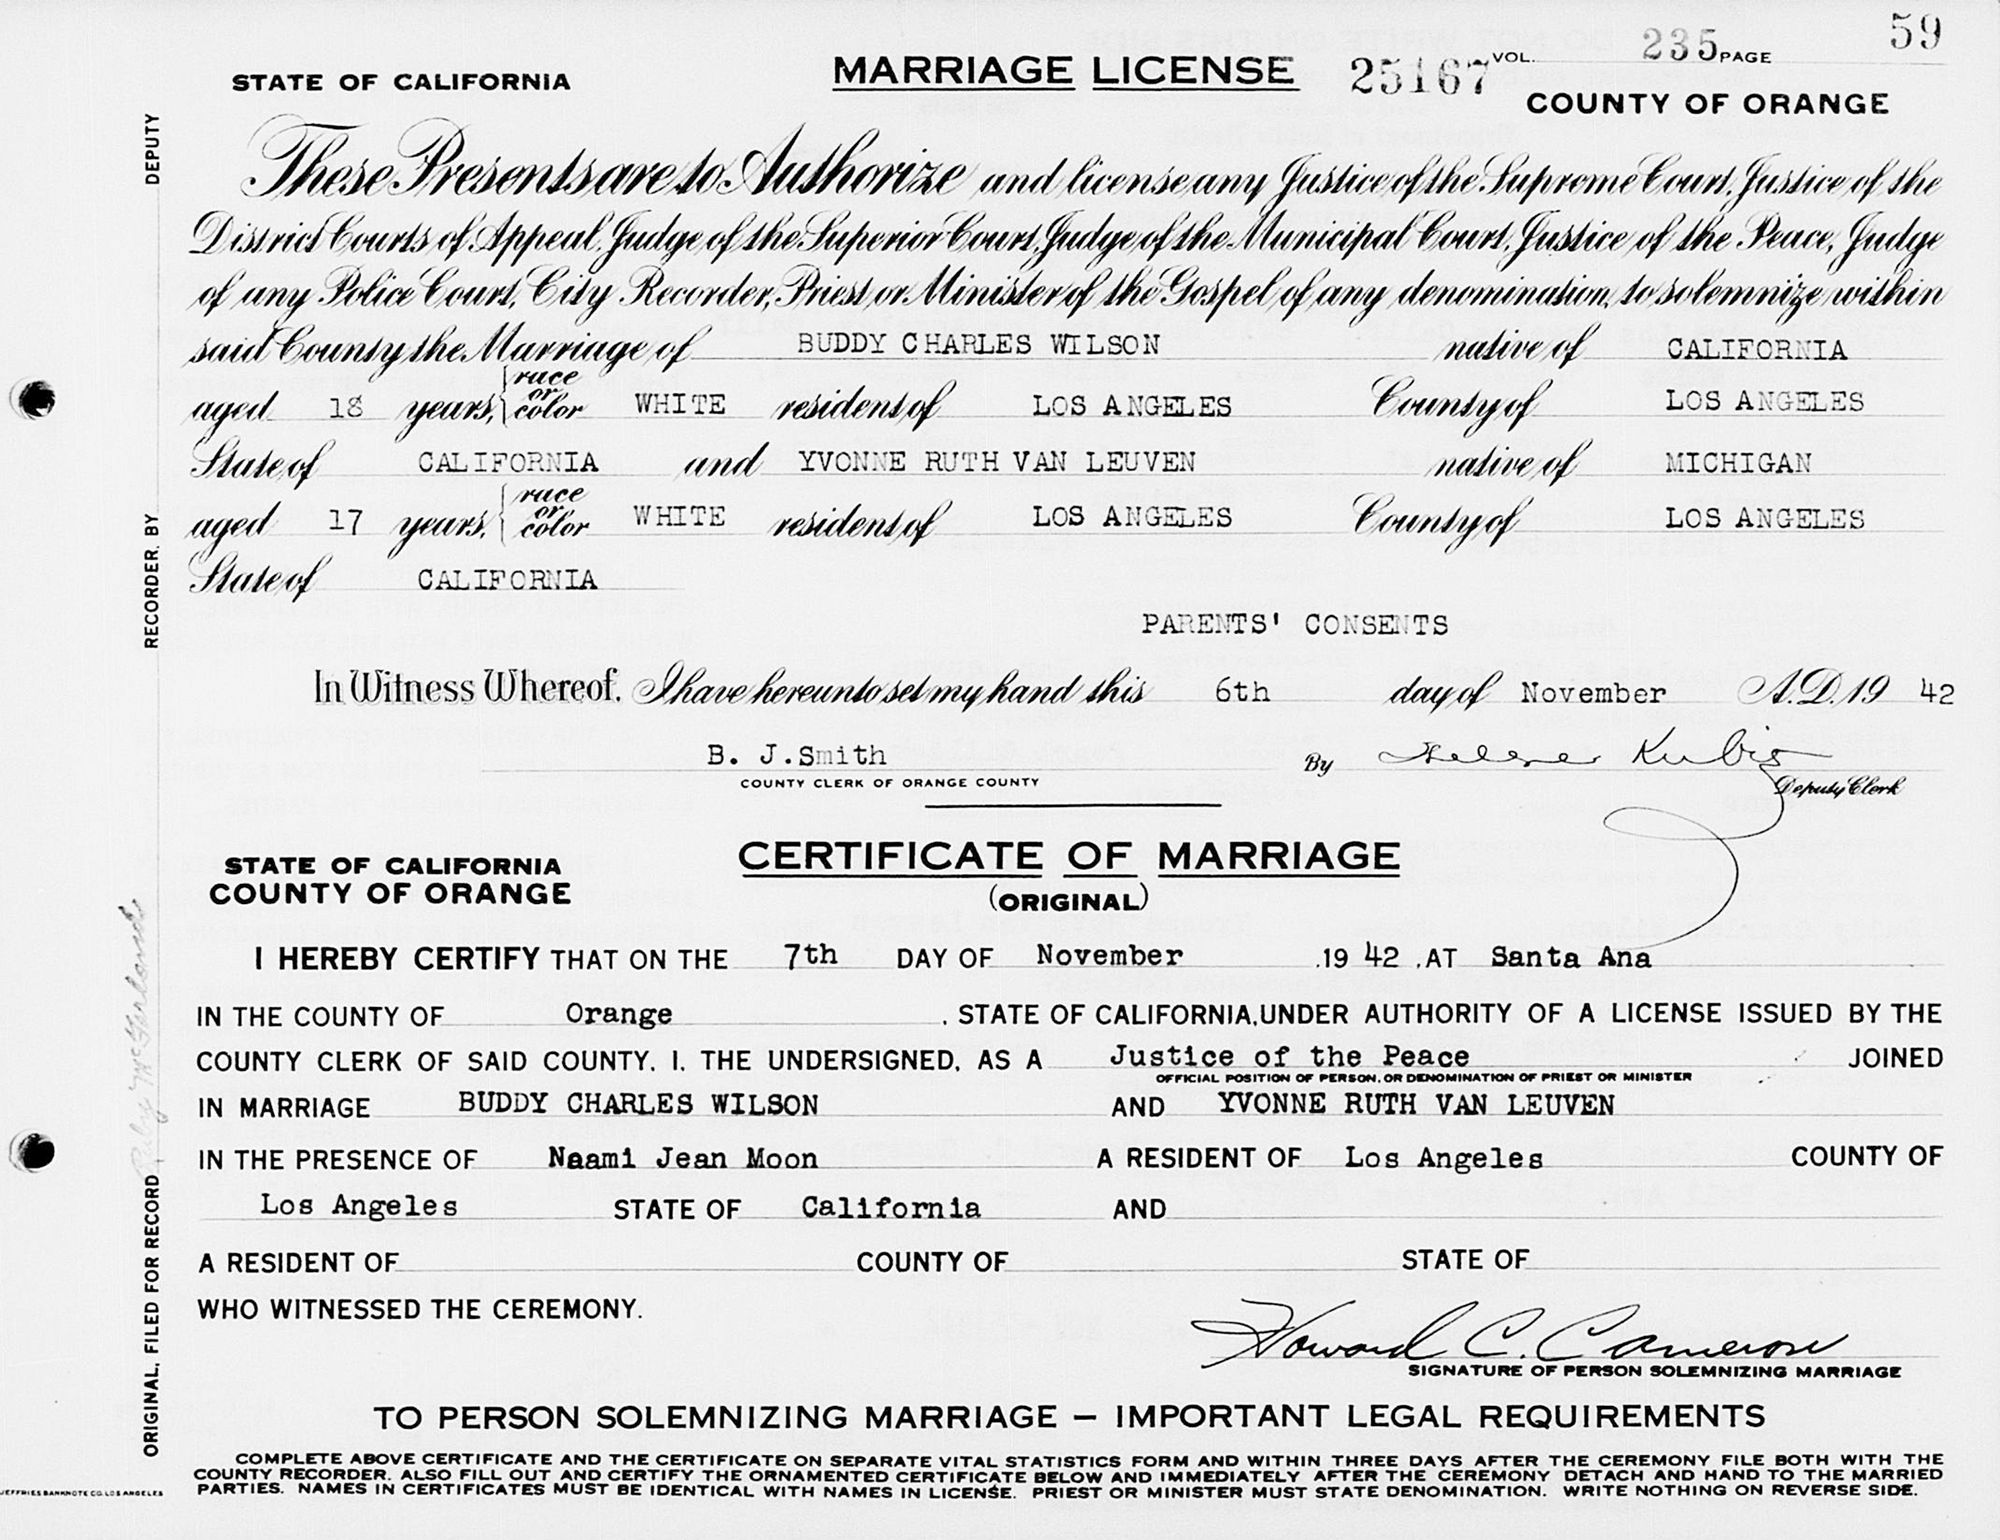 59
STATE OF CALIFORNIA MARRIAGE LICENSE 25167 VOL. 235 PAGE
COUNTY OF ORANGE
These Presents are to Authorize and license any Justice of the Supreme Court, Justice of the
District Courts of Appeal, Judge of the Superior Court, Judge of the Municipal Court, Justice of the Peace, Judge
of any Police Court, City Recorder, Priest or Minister of the Gospel of any denomination, to solemnize within
said County the Marriage of BUDDY CHARLES WILSON native of CALIFORNIA
aged 18 years, race or color WHITE resident of LOS ANGELES County of LOS ANGELES
State of CALIFORNIA and YVONNE RUTH VAN LEUVEN native of MICHIGAN
aged 17 years, race or color WHITE resident of LOS ANGELES County of LOS ANGELES
State of CALIFORNIA
PARENTS' CONSENTS
In Witness Whereof, I have hereunto set my hand this 6th day of November A.D. 19 42
B. J.Smith By Kubig
COUNTY CLERK OF ORANGE COUNTY Deputy Clerk
CERTIFICATE OF MARRIAGE
STATE OF CALIFORNIA
COUNTY OF ORANGE (ORIGINAL)
I HEREBY CERTIFY THAT ON THE 7th DAY OF November .19 42 .AT Santa Ana
IN THE COUNTY OF Orange , STATE OF CALIFORNIA, UNDER AUTHORITY OF A LICENSE ISSUED BY THE
COUNTY CLERK OF SAID COUNTY, I, THE UNDERSIGNED, AS A Justice of the Peace JOINED
OFFICIAL POSITION OF PERSON, OR DENOMINATION OF PRIEST OR MINISTER
IN MARRIAGE BUDDY CHARLES WILSON AND YVONNE RUTH VAN LEUVEN
IN THE PRESENCE OF Naami Jean Moon A RESIDENT OF Los Angeles COUNTY OF
Los Angeles STATE OF California AND
A RESIDENT OF COUNTY OF STATE OF
WHO WITNESSED THE CEREMONY.
Howard C. Cameron
SIGNATURE OF PERSON SOLEMNIZING MARRIAGE
TO PERSON SOLEMNIZING MARRIAGE – IMPORTANT LEGAL REQUIREMENTS
COMPLETE ABOVE CERTIFICATE AND THE CERTIFICATE ON SEPARATE VITAL STATISTICS FORM AND WITHIN THREE DAYS AFTER THE CEREMONY FILE BOTH WITH THE
COUNTY RECORDER. ALSO FILL OUT AND CERTIFY THE ORNAMENTED CERTIFICATE BELOW AND IMMEDIATELY AFTER THE CEREMONY DETACH AND HAND TO THE MARRIED
PARTIES. NAMES IN CERTIFICATES MUST BE IDENTICAL WITH NAMES IN LICENSE. PRIEST OR MINISTER MUST STATE DENOMINATION. WRITE NOTHING ON REVERSE SIDE.
JEFFRIES BANKNOTE CO. LOS ANGELES
ORIGINAL, FILED FOR RECORD Ruby McFarland RECORDER, BY DEPUTY